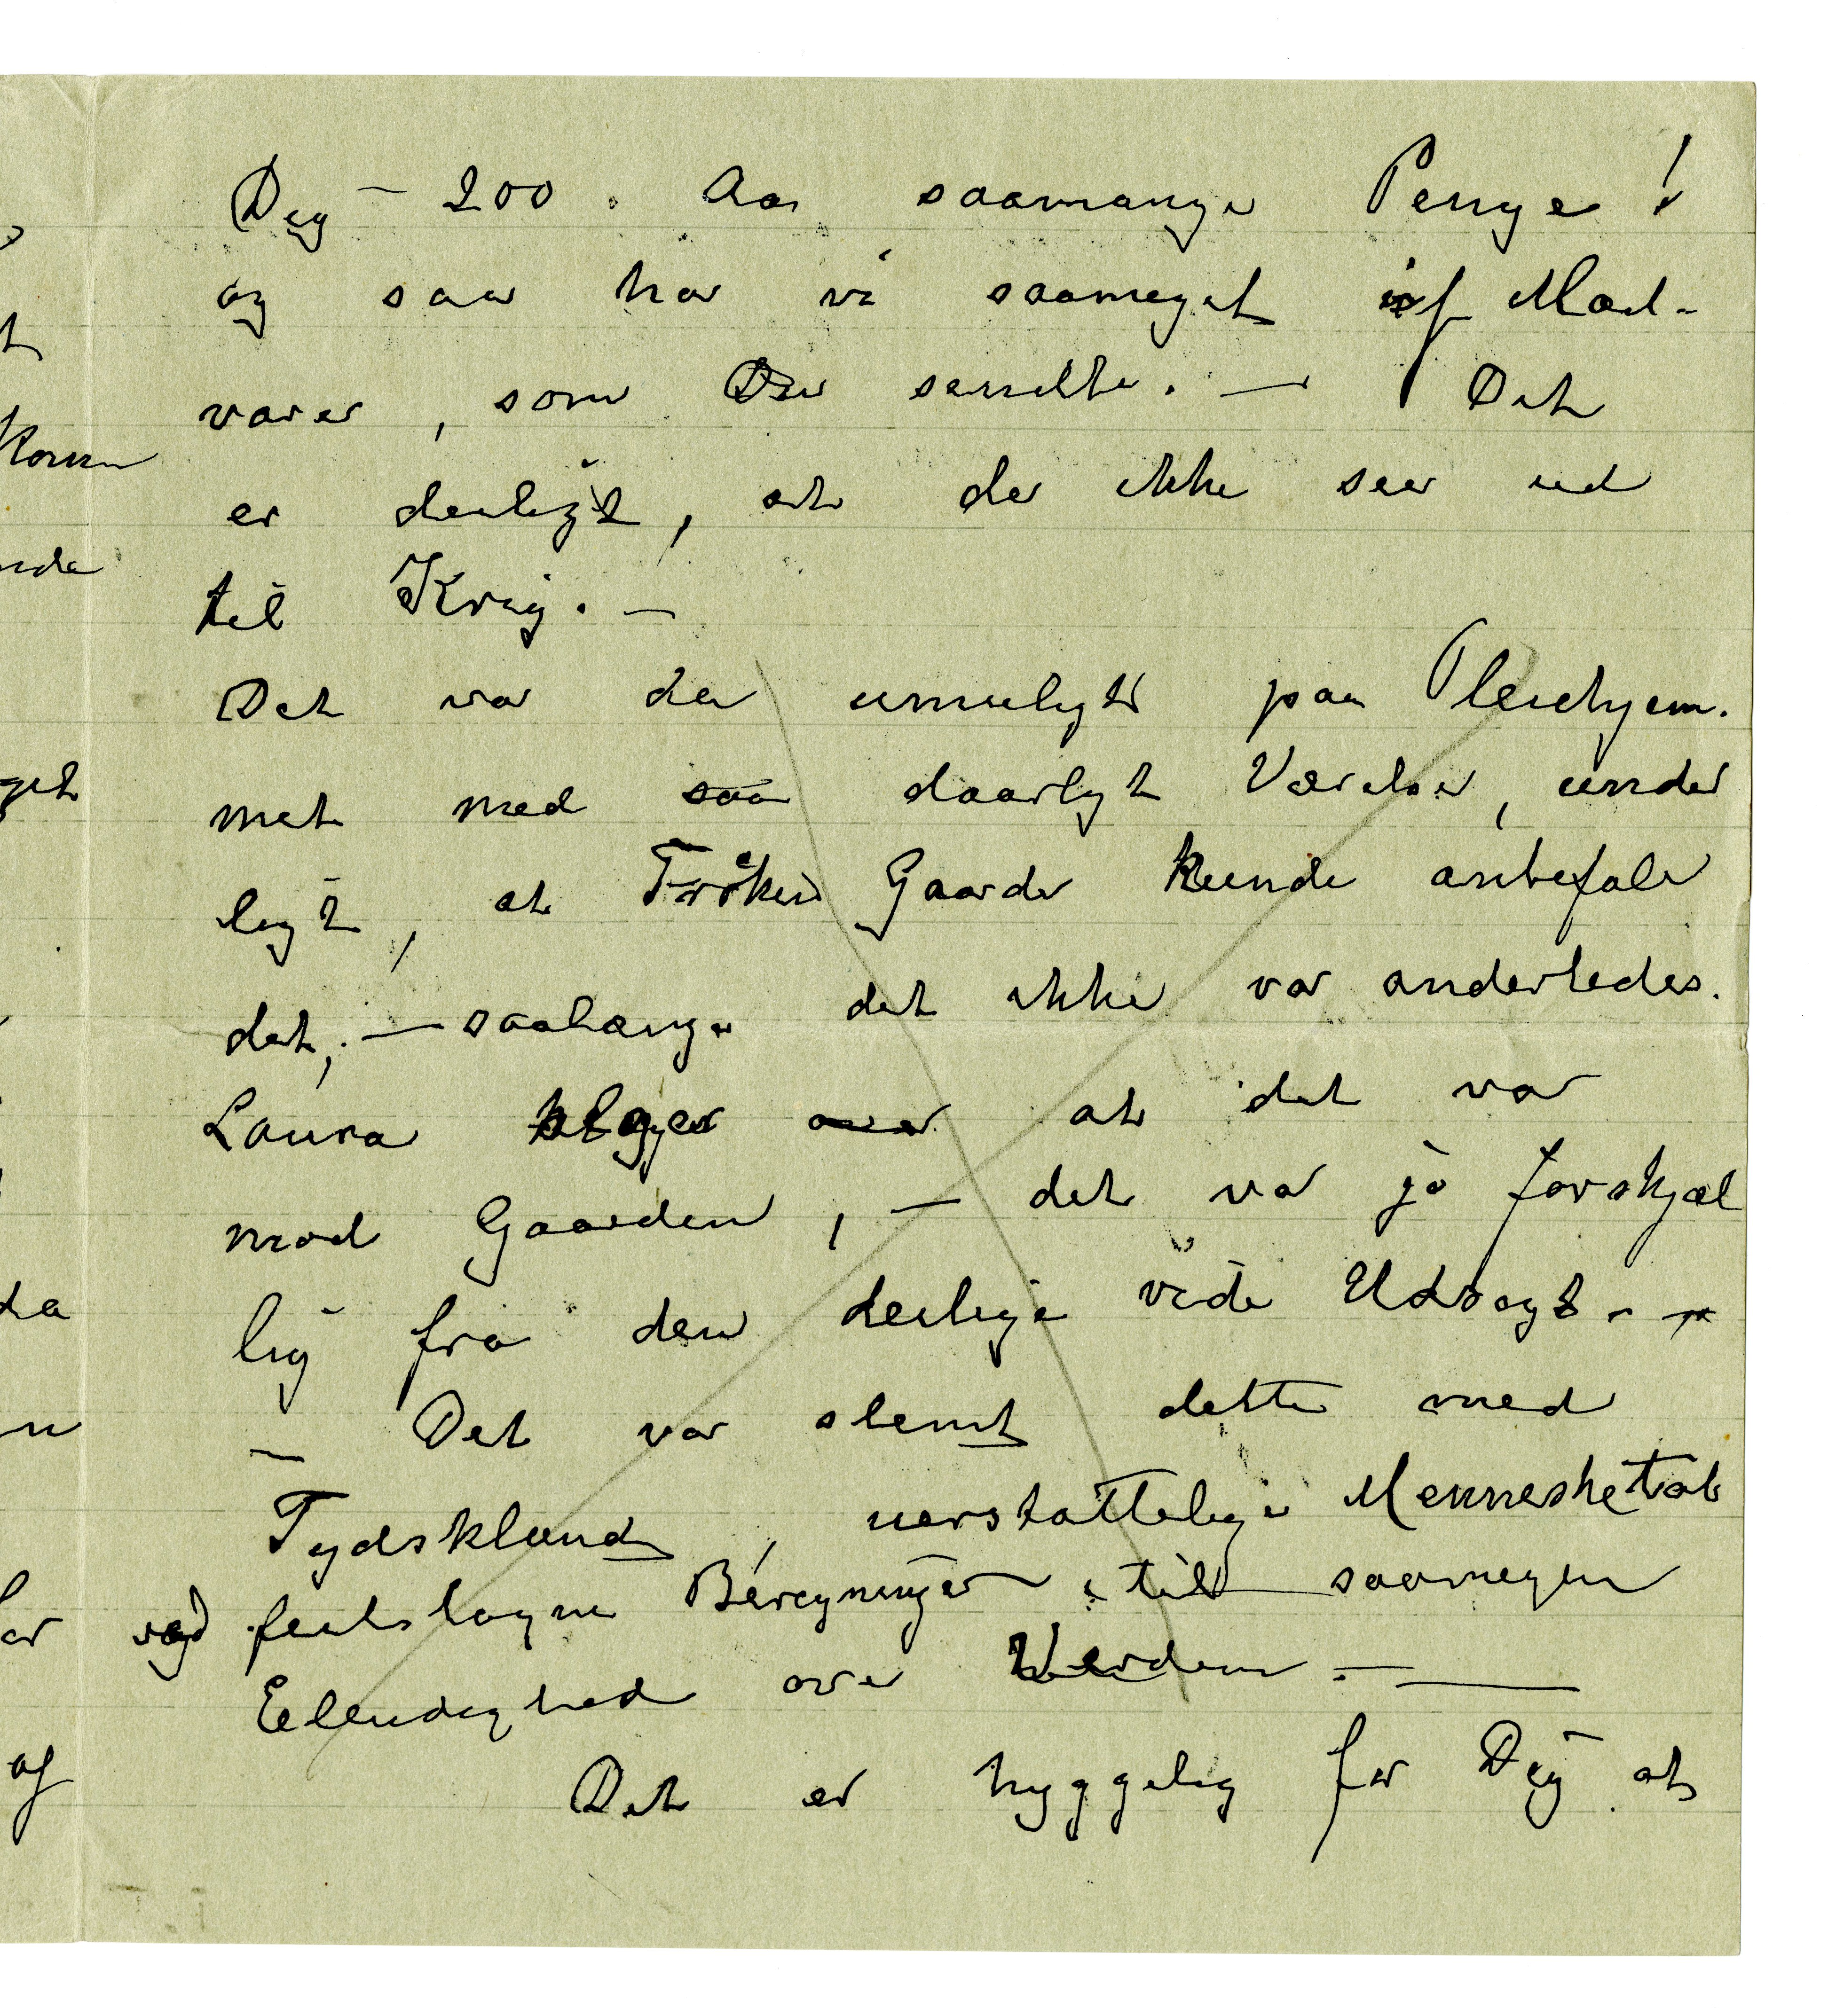 Dig – 200. Aa saamange Penge!
og saa har vi saameget af Mad-
varer, som Du sendte. – Det
er deiligt, at der ikke seer ud
til Krig. –
Det var da umuligt paa Pleiehjem-
met med saa daarligt Værelse, under
ligt, at Frøken Gaarde kunde anbefale
det; – saalænge det ikke var anderledes.
Laura klager over at det var
mod Gaarden, – det var jo forskjæl
lig fra den deilige vide Udsogt. –
– Det var slemt dette med
Tydskland, uerstattelige Mennesketab
ved feilslagne Beregninger, til saamegen
Elendighed over Verden. –
Det er hyggelig for Dig at